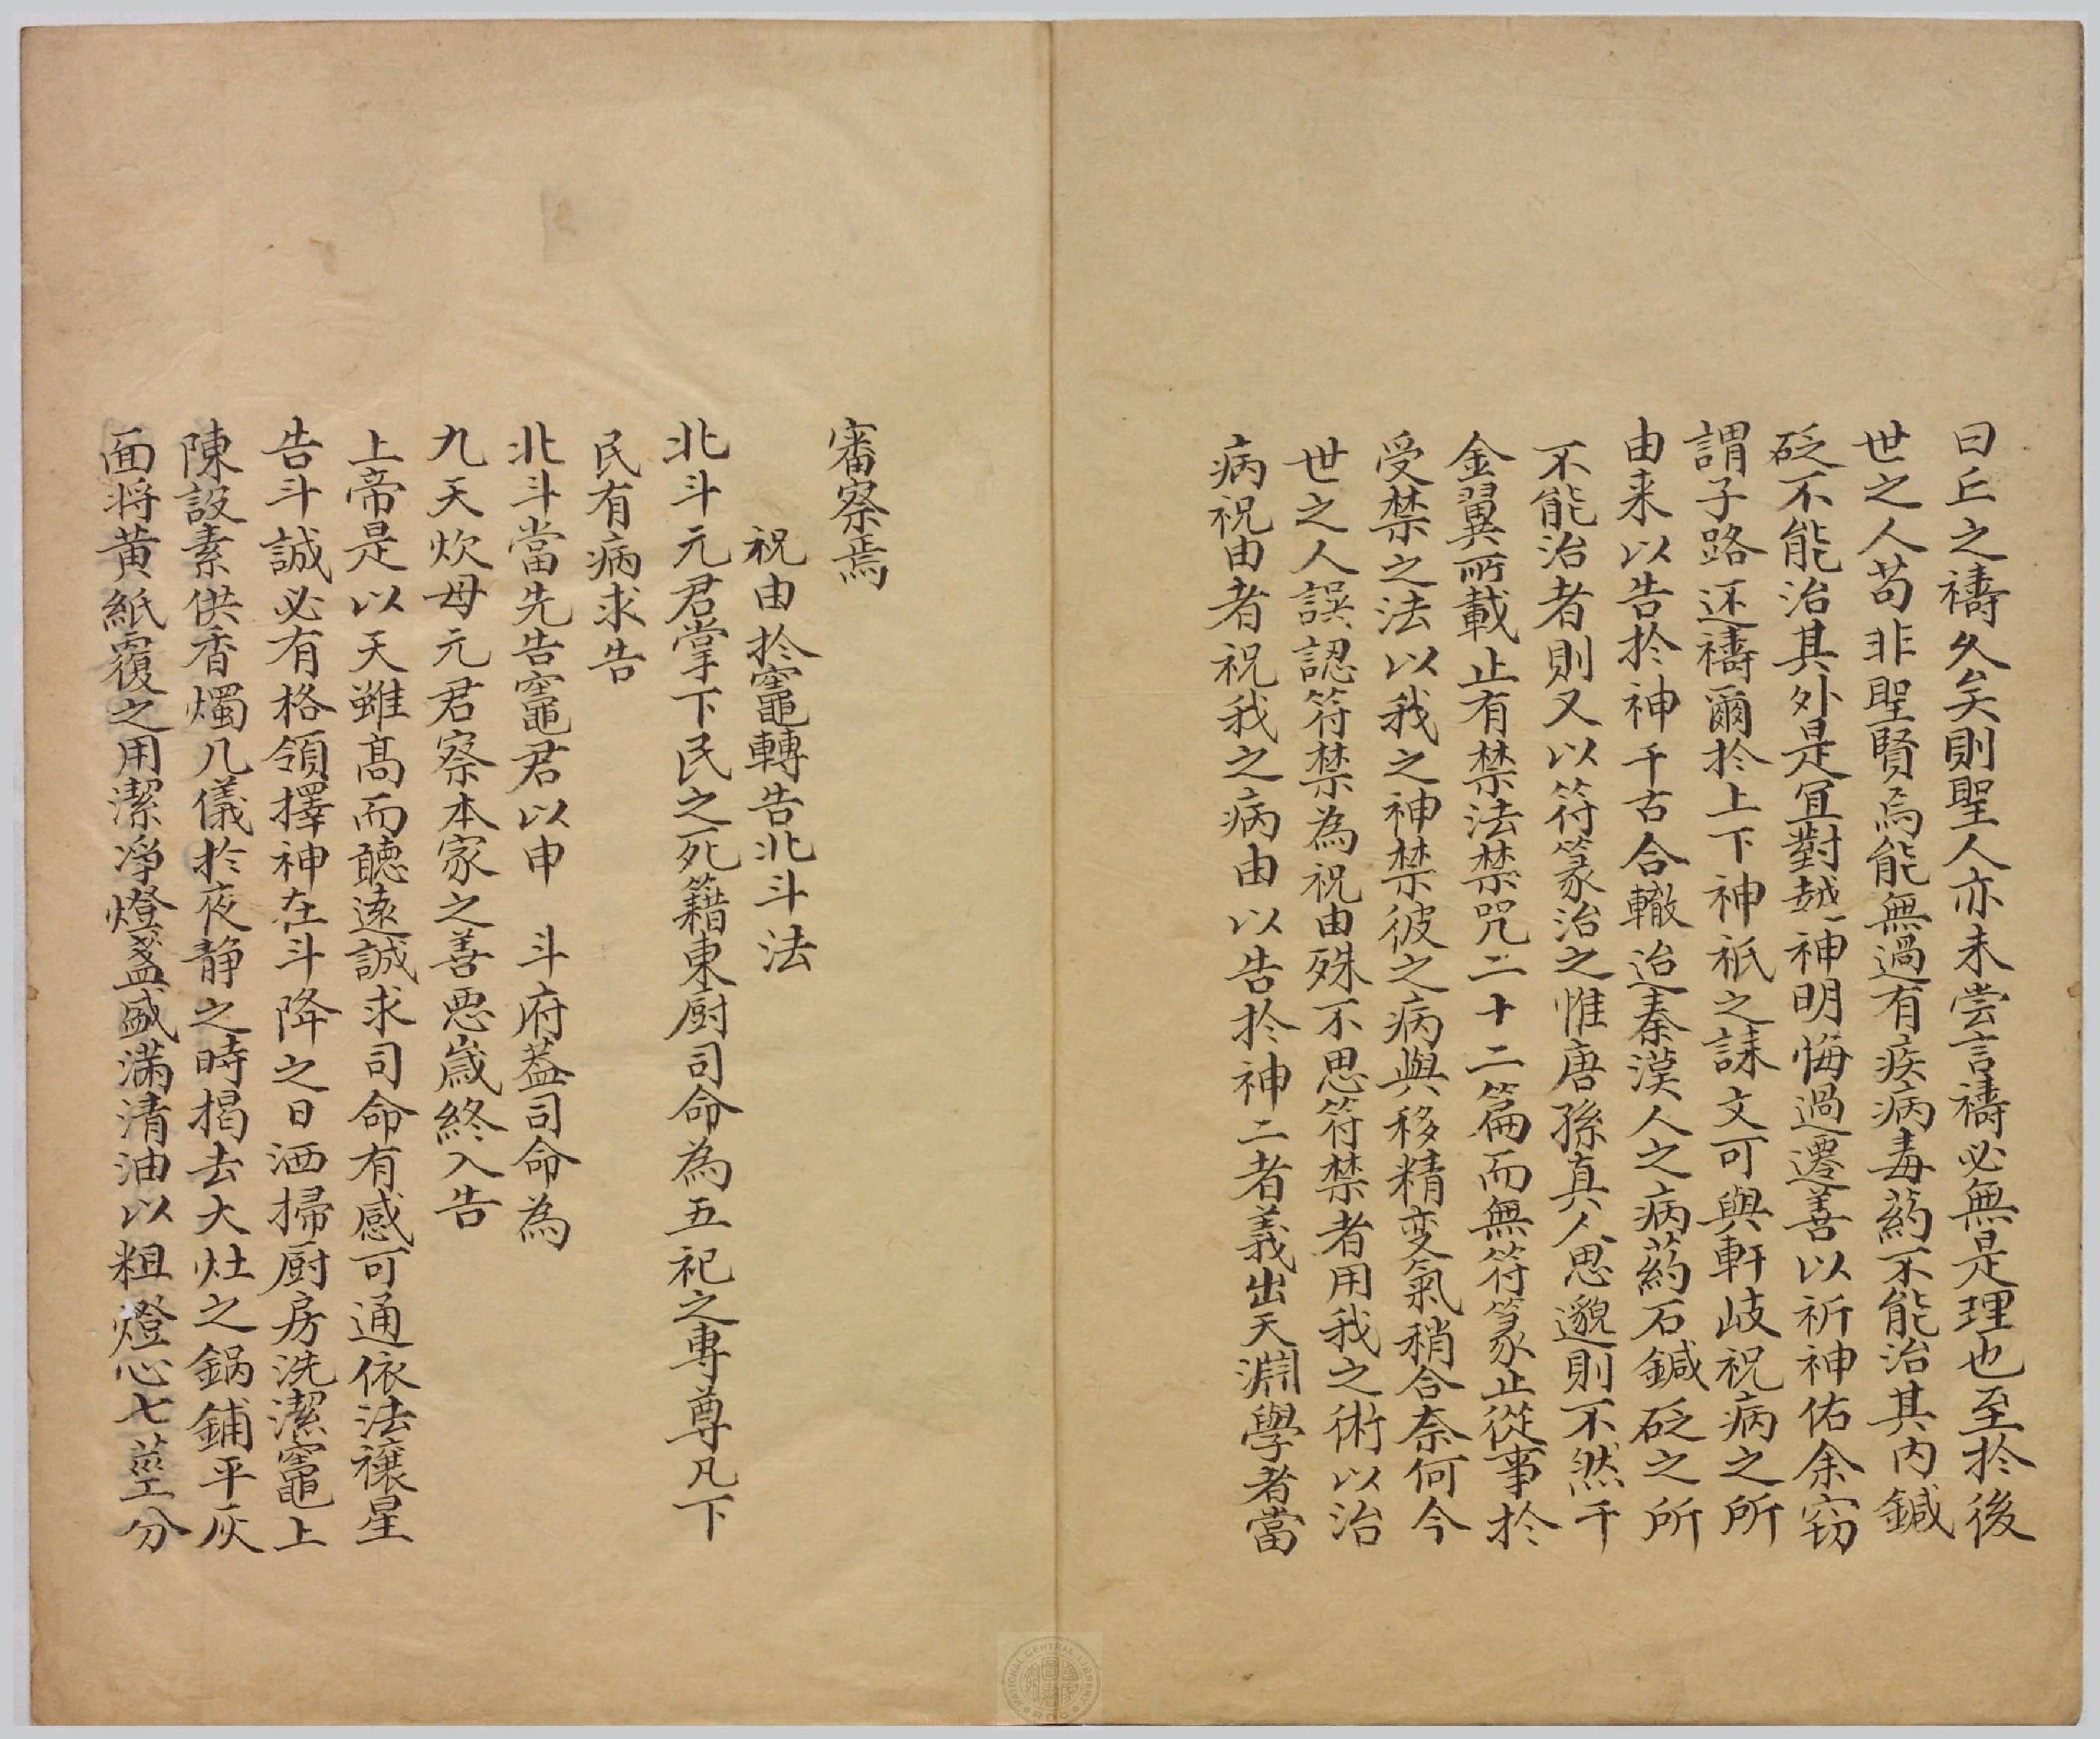 曰丘之禱久矣則聖人亦未嘗言禱必無是理也至於後
世之人苟非聖賢焉能無過有疾病毒药不能治其内鍼
砭不能治其外是宜對越神明悔過遷善以祈神佑余窃
謂子路还禱爾於上下神祇之誄文可與軒岐祝病之所
由来以告於神千古合轍迨秦漢人之病药石鍼砭之所
不能治者則又以符篆治之惟唐孫真人思邈則不然千
金翼所載止有禁法禁咒二十二篇而無符篆止從事於
受禁之法以我之神禁彼之病與移精变氣稍合奈何今
世之人誤認符禁為祝由殊不思符禁者用我之術以治
病祝由者祝我之病由以告於神二者義出天淵學者當
審察焉
祝由於竈轉告北斗法
北斗元君掌下民之死籍東厨司命為五祀之專尊凡下
民有病求告
北斗當先告竈君以申 斗府葢司命為
九天炊母元君察本家之善悪歲終入告
上帝是以天雖髙而聽遠誠求司命有感可通依法禳星
告斗誠必有格領擇神在斗降之日洒掃厨房洗潔竈上
陳設素供香燭几儀於夜静之時揭去大灶之鍋鋪平灰
面将黄紙覆之用潔净燈盞盛滿清油以粗燈心七莖分
NATIONAL CENTRAL LIBRARY R.O.C.